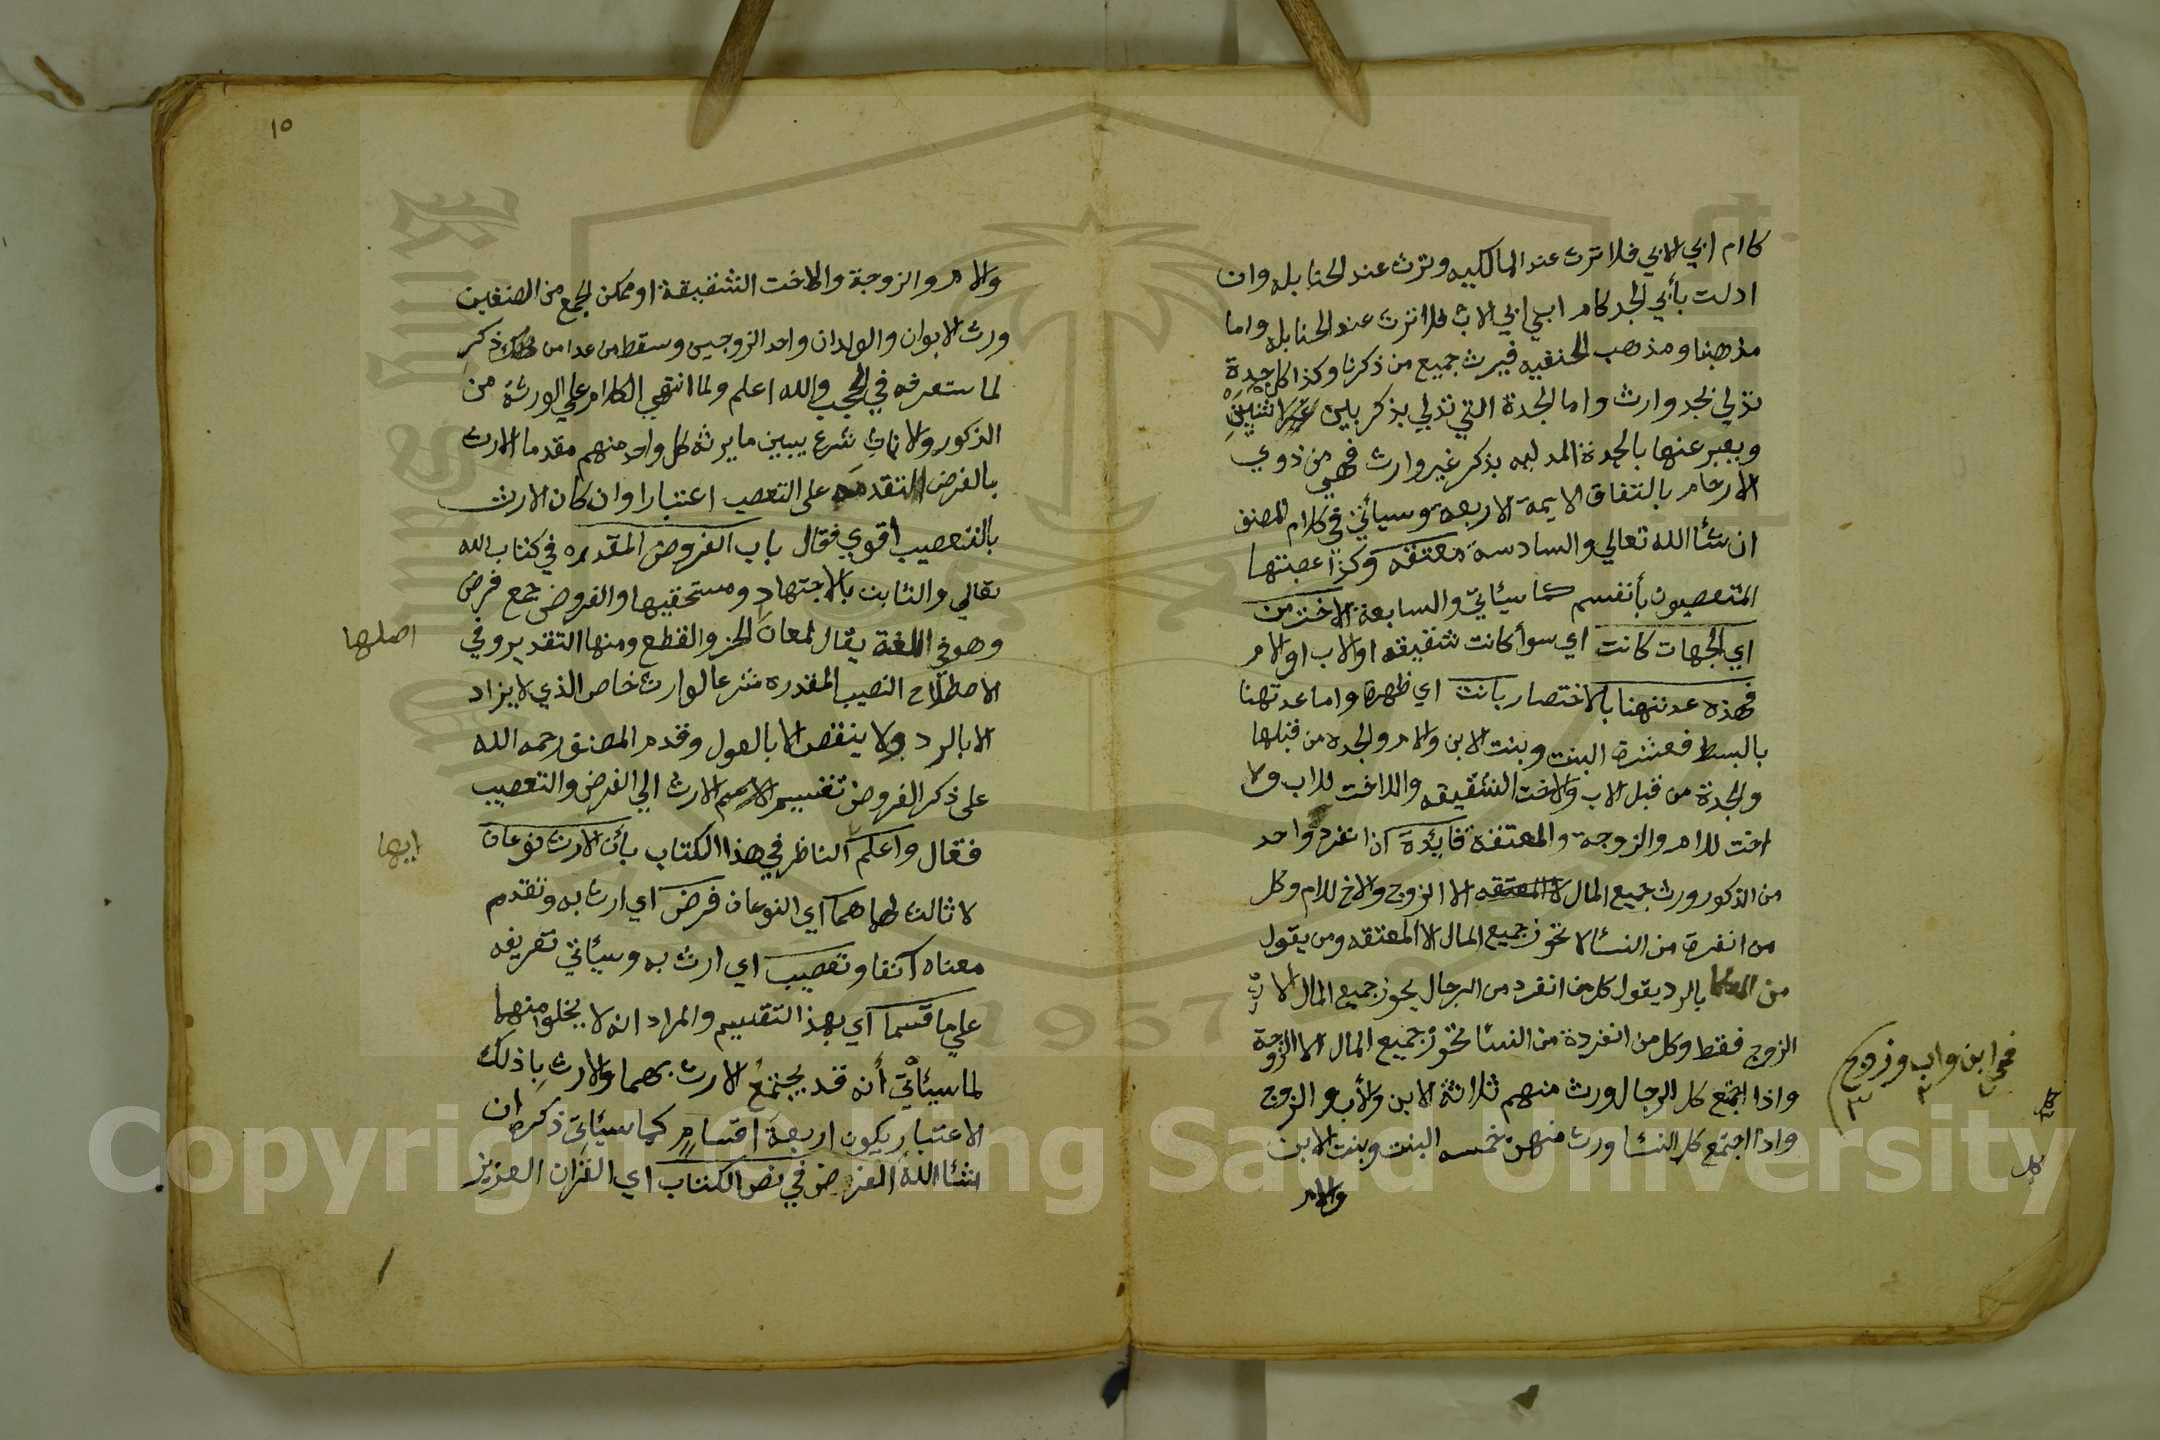 كام ابي الابي فلا ترث عند المالكيه وترث عند الحنابله وان
ادلت بأبي الجد كام ابي ابي الاب فلا ترث عند الحنابله واما
مذهبنا ومذهب الحنفيه فيرث جميع من ذكرنا وكذا كل جدة
تدلي لجد وارث واما الجدة التي تدلي بذكر بين انثيين
ويعبر عنها بالجدة المدليه بذكر غير وارث فهي من ذوي
الارحام بالتفاق الايمة الاربعة وسيأتي في كلام المصنف
ان شأالله تعالي والسادسة معتقه وكذا عصبتها
المتعصبون بأنفسم كما سيئاتي والسابعة الاخت من
اي الجهات كانت اي سوأ كانت شقيقه او لاب او لام
فهذه عدتهنا بالاختصار بانت اي ظهرة واما عدتهنا
بالبسط فعشرة البنت وبنت الابن والام والجده من قبلها
والجدة من قبل الاب والاخت الشقيقه والاخت للاب ولا
اخت للام والزوجة والمعتقة فايدة اذا انفرد واحد
من الذكور ورث جميع المال الا الزوج والاخ للام وكل
من انفردة من النسا لا تحوز جميع المال الا المعتقه ومن يقول
من بالرد يقول كل من انفرد من الرجال يحوز جميع المال الا
الزوج فقط وكل من انفردة من النسا تحوز جميع المال الا الزوجة
واذا اجتمع كل الرجال ورث منهم ثلاثة الابن والأب والزوج
واذا اجتمع كل النسا ورث منهن خمسه البنت وبنت الابن
والام
ابن واب وزوج
٢
٣
كل
١٥
والام والزوجة والاخت الشقيقة او ممكن الجمع من الصنفين
ورث الابوان والولدان واحد الزوجين وسقط من عدا من ذكر
لما ستعرفه في الحجب والله اعلم ولما انتهي الكلام علي الورثة من
الذكور والاناث شرع يبين ما يرثه كل واحد منهم مقدما الارث
بالفرض لتقدمه على التعصيب اعتبارا وان كان الارث
بالتعصيب اقوي فقال باب الفروض المقدره في كتاب الله
تعالي والثابت بالاجتهاد ومستحقيها والفروض جمع فرض
وهو في اللغة يقال لمعان الحز والقطع ومنها التقدير وفي
اصلها
الاصطلاح النصيب المقدره شرعا لوارث خاص الذي لا يزاد
الا بالرد ولا ينقص الا بالعول وقدم المصنف رحمه الله
على ذكر الفروض تقسيم الارث الي الفرض والتعصيب
فقال واعلم الناظر في هذا الكتاب بأن الارث نوعان
ايها
لا ثالث لهما هما اي النوعان فرض اي ارث به وتقدم
معناه آنفا وتعصيب اي ارث به وسيئاتي تعريفه
علي ما قسما اي بهذ التقسيم والمراد انه لا يخلوا منهما
لما سيئأتي أنه قد يجتمع الارث بهما والارث باذلك
الاعتبار يكون اربعة اقسام كما سيئاتي ذكره ان
شئا الله الفرض في نص الكتاب اي القرآن العزيز
Copyright © King Saud University
King Saud University
1957